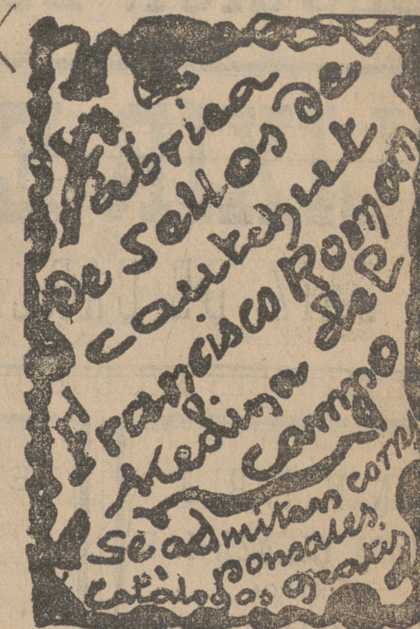 Fábrica
de Sellos de
cautchuet
Francisco Roman
Medina del
Campo
Se admiten corres
ponsales.
Catàlogos gratis